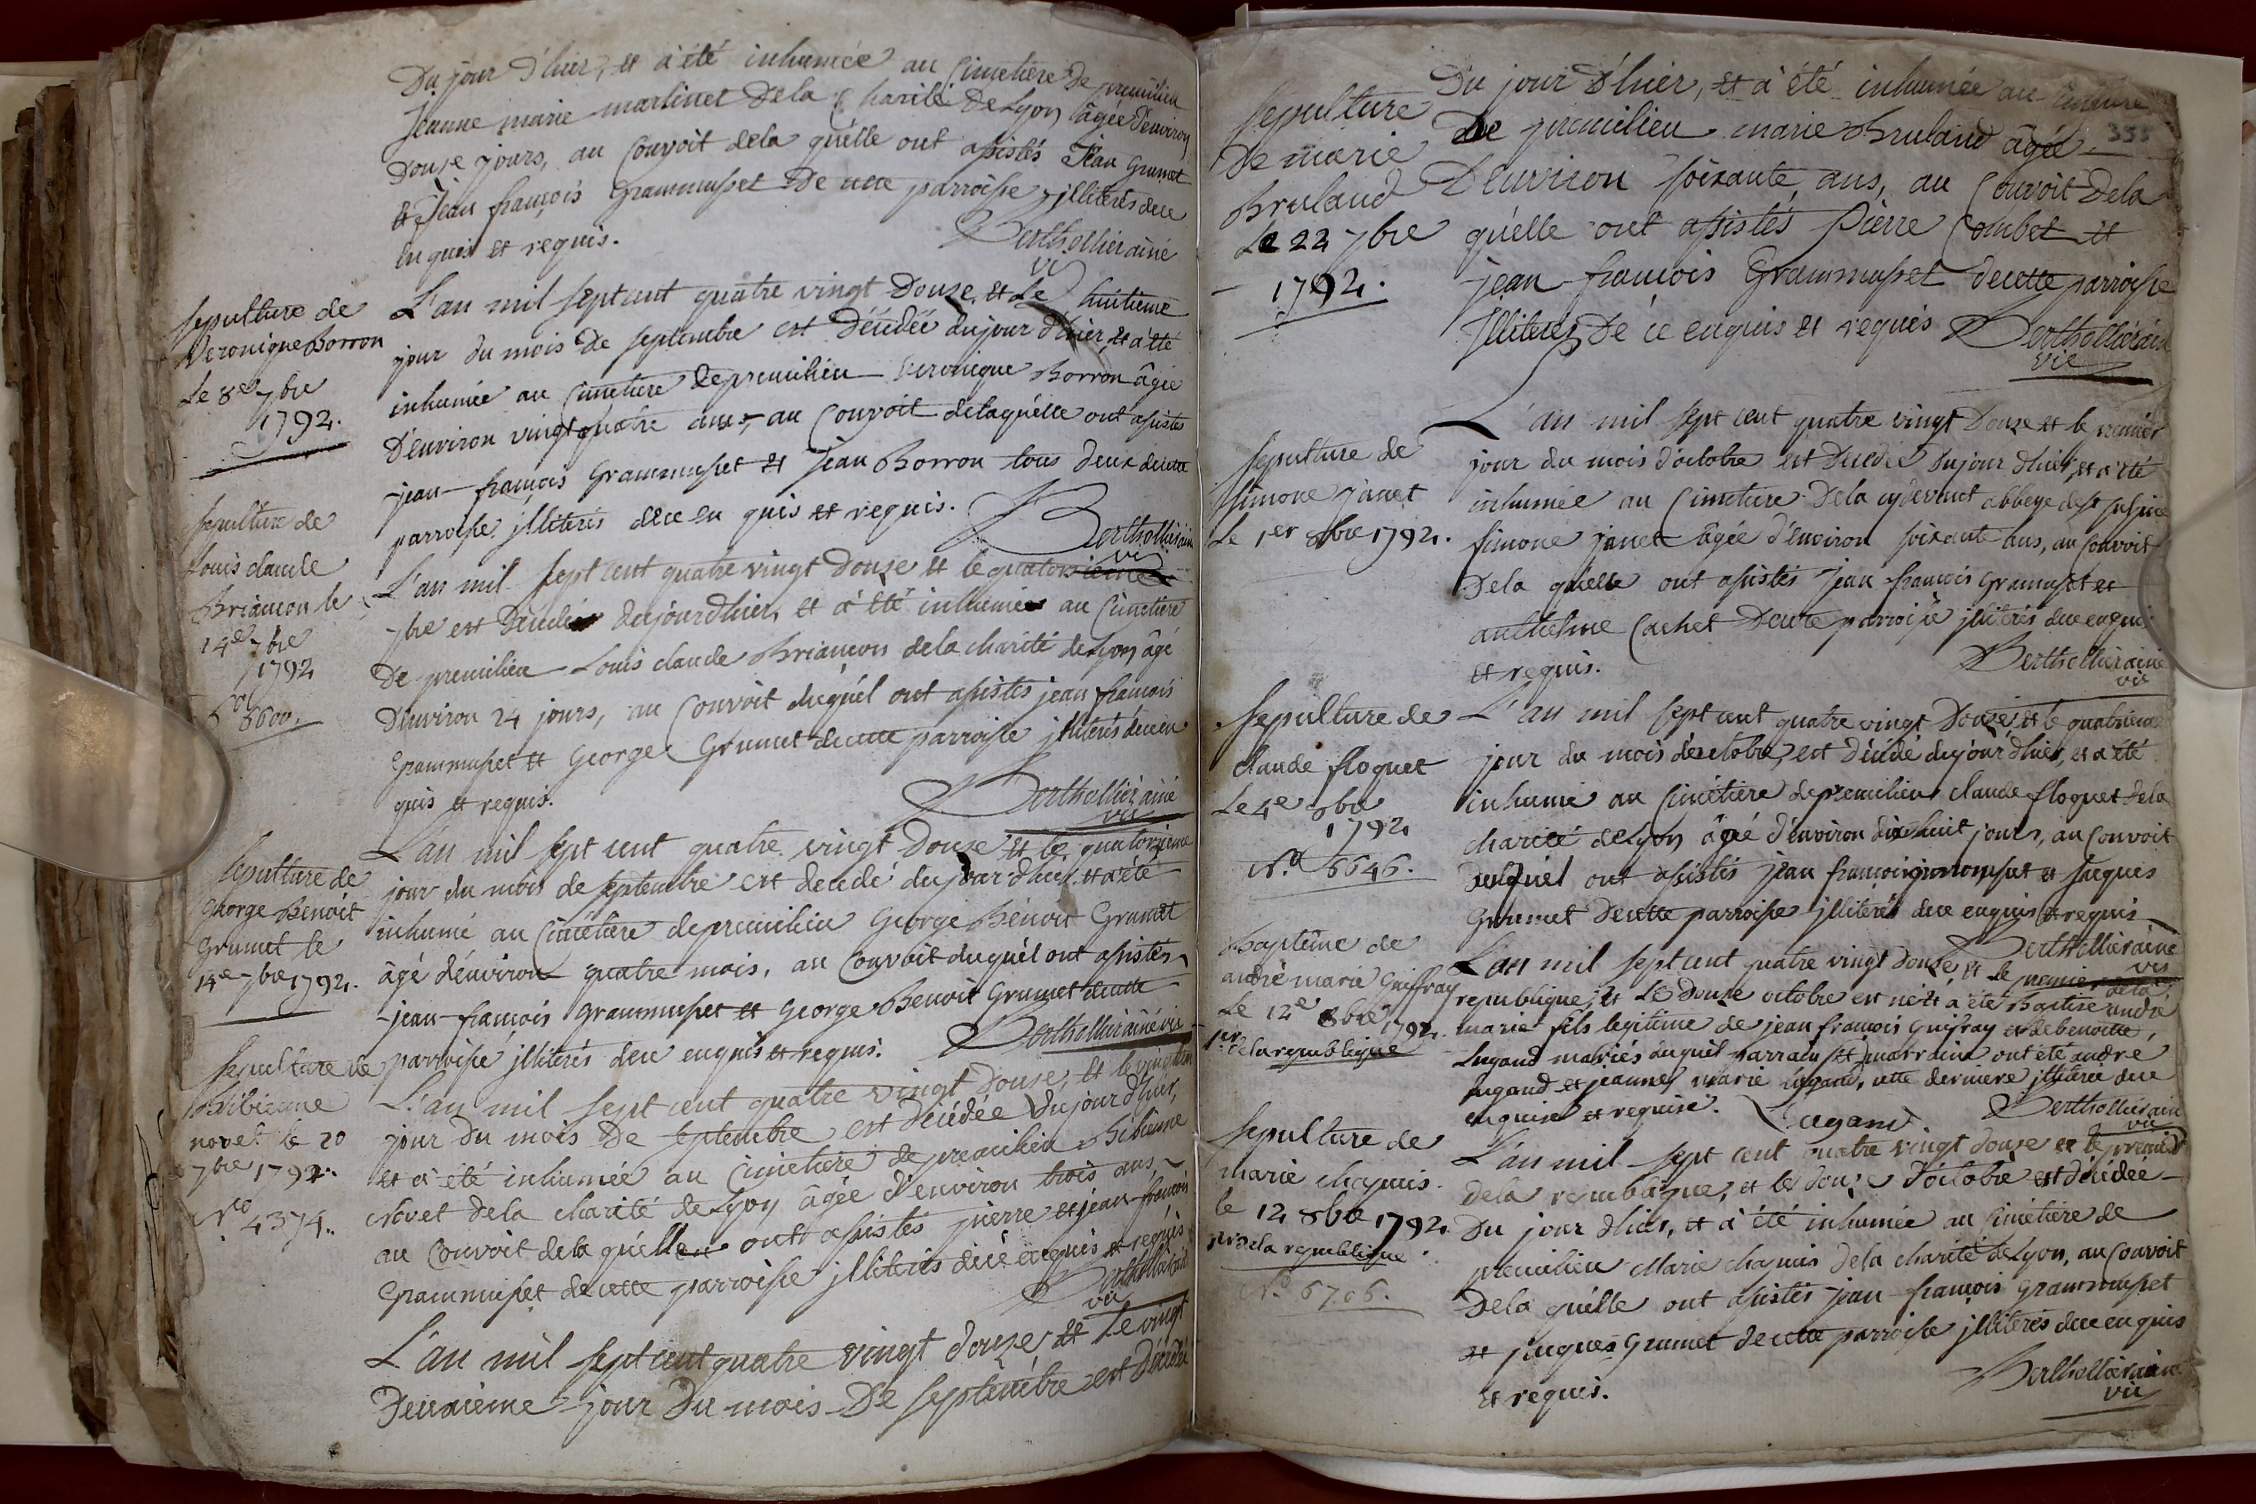 Du jour d'hier, et à été inhumée au Cimetiere de premilieu
Jeanne marie martinet Dela Charité De Lyon âgée d'environ
Douse jours, au Convoit dela quélle ont asistés Jean Grumet
et Jean françois Grammuset De cette parroisse jlliterés dece
enquis et requis. Berthollier ainé
vic
Sepulture de
Veronique Borron
Le 8e 7bre
1792.
L'an mil sept cent quatre vingt Douse, et Le huitieme
jour du mois De septembre est Décédée du jour d'hier, et à été
inhumée au Cimetiere de premilieu Veronique Borron âgée
D'environ vingt quatre ans, au Convoit de laquélle ont asistés
jean françois Grammuset et Jean Borron tous deux de cette
parroisse jlliterés dece enquis et requis.
Berthollier ainé
vic
Sepulture de
Louis claude
Briancon le
14e 7bre
1792
No 6600.
L'an mil sept cent quatre vingt douse et le quatorsieme
7bre est Décédé du jour d'hier, et à été inhumé au Cimetiere
De premilieu Louis claude Briancon dela charité de Lyon âgé
D'environ 24 jours, au Convoit duquél ont asistés jean françois
Grammuset et George Grumet de cette parroisse jlliterés de ce en
quis et requis. Berthollier ainé
vic
Sepulture de
George Benoit
Grumet le
14e 7bre 1792.
L'an mil sept cent quatre vingt Douse et le quatorsieme
jour du mois de septembre est decedé du jour d'hier et à été
inhumé au Cimétiere de premilieu George Bénoit Grumet
âgé d'énviron quatre mois, au Convoit duquél ont asistés
jean françois Grammuset et George Benoit Grumet de cette
parroisse jlliterés dece enquis et requis. Berthollier ainé vic
Sepulture de
Bibienne
novet le 20
7bre 1792.
No 4374.
L'an mil sept cent quatre vingt Douse, et le vingtieme
jour Du mois De septembre est Décédée Du jour d'hier,
et à été inhumée au Cimetiere de premilieu Bibienne
Novet dela charité de Lyon âgée d'environ trois ans,
au Convoit dela quélle ont asistés pierre et jean françois
Grammuset de cette parroisse jlliterés dece enquis et requis
Berthollier ainé
vic
L'an mil sept cent quatre vingt douse et Le vingt
Deuxieme jour Du mois De septembre est Décédée
335
Sepulture
De marie
Bruland
Le 22 7bre
1792.
Du jour D'hier, et à été inhumée au Cimetiere
De premilieu marie Bruland âgée
D'environ soixante ans, au Convoit De la
quélle ont asistés Pierre Combet et
jean françois Grammuset de cette parroisse
Jlliterés De ce enquis et requis Berthollier ainé
vic
Sepulture de
Simone janet
Le 1er 8bre 1792.
L'an mil sept cent quatre vingt Douse et le premier
jour du mois d'octobre est Decedée Du jour d'hier, et à été
inhumée au Cimetiere De la cydevant abbeye de st sulpice
simone janet âgée d'environ soixante ans, au Convoit
De la quélle ont asistés jean françois Grammuset et
anthelme Cachet De cette parroisse jlliterés dece enquis
et requis. Berthollier ainé
vic
Sepulture de
claude floquet
Le 4e 8bre
1792
No 6646.
L'an mil sept cent quatre vingt Douse et le quatrieme
jour du mois d'octobre, est Décédé du jour d'hier, et à été
inhumé au Cimétiere de premilieu claude floquet dela
charité de Lyon âgé d'environ dix huit jours, au Convoit
duquél ont asistés jean françois grammuset et Jacques
Grumet De cette parroisse jlliterés dece enquis et requis
Berthollier ainé
vic
Baptême de
andré marie Guiffray
Le 12e 8bre 1792.
1er de la republique
L'an mil sept cent quatre vingt douse, et le premier de la
republique, et Le Douse octobre est né et à été Baptisé andré
marie fils legitime de jean françois Guiffray et de benoitte
Lugand mariés auquél parrain et marraine ont été andré
lugand et jeanne marie lugand, cette derniere jlliterée dece
enquise et requise. Lugand Berthollier ainé
vic
Sepulture de
marie chapuis
le 12 8bre 1792.
1er de la republique
No 6706.
L'an mil sept cent quatre vingt douse et le premier
dela republique, et le douse d'octobre est décédée
Du jour d'hier, et à été inhumée au Cimetiere de
premilieu Marie chapuis dela charité de Lyon, au Convoit
De la quélle ont asistés jean françois Grammuset
et jacques Grumet de cette parroisse jlliterés dece enquis
et requis. Berthollier ainé
vic